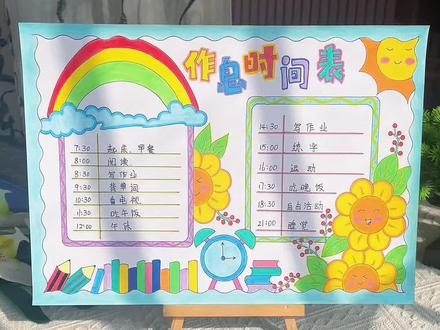 作息时间表
7:30 起床、早餐
8:00 阅读
8:30 写作业
9:30 背单词
10:30 看电视
11:30 吃午饭
12:00 午休
14:30 写作业
15:00 练字
16:00 运动
17:30 吃晚饭
18:30 自由活动
21:00 睡觉